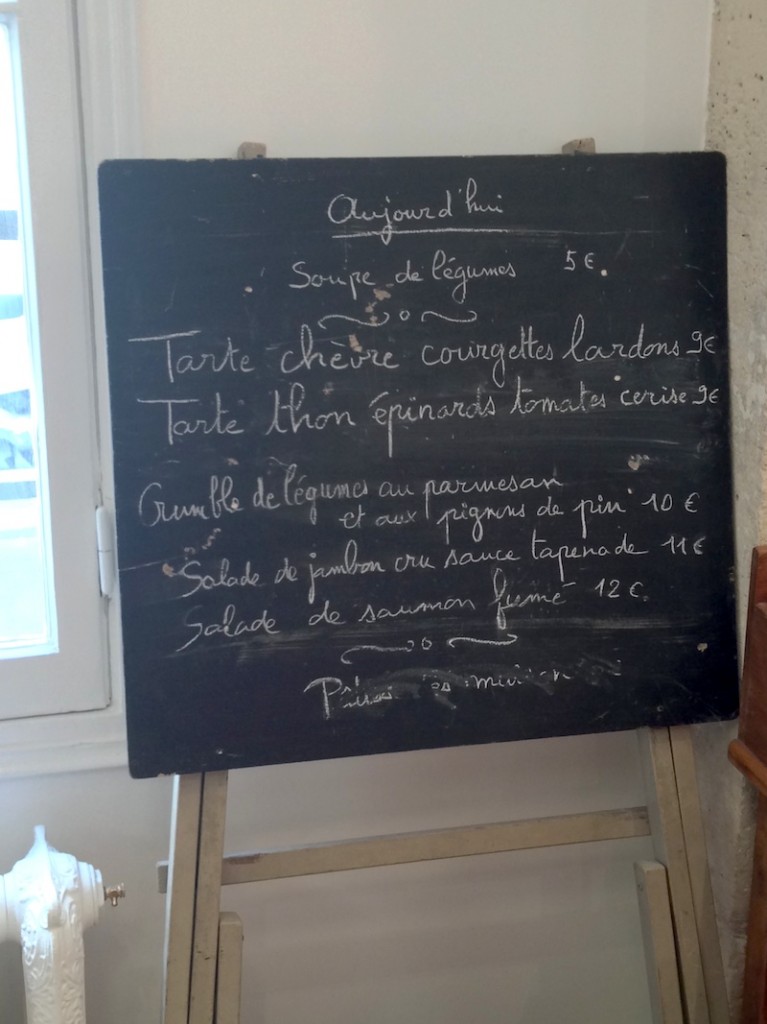 Aujourd'hui
Soupe de légumes 5€.
Tarte chèvre courgettes lardons 9€
Tarte thon épinards tomates cerise 9€
Crumble de légumes au parmesan
et aux pignons de pin 10 €
Salade de jambon cru sauce tapenade 11€
Salade de saumon fumé 12 €.